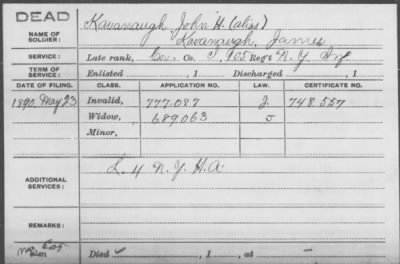 DEAD
NAME OF SOLDIER:
Kavanaugh, John H. (alias)
Kavanaugh, James
SERVICE:
Late rank, Cor. Co. I, 105 Reg't N.Y. Inf
TERM OF SERVICE:
Enlisted , 1 Discharged , 1
DATE OF FILING. CLASS. APPLICATION NO. LAW. CERTIFICATE NO.
1890 May 23 Invalid, 777.087 J. 748.557
Widow, 689063 J
Minor,
ADDITIONAL SERVICES:
L. 4 N.Y. H.A.
REMARKS:
Died , 1 , at —